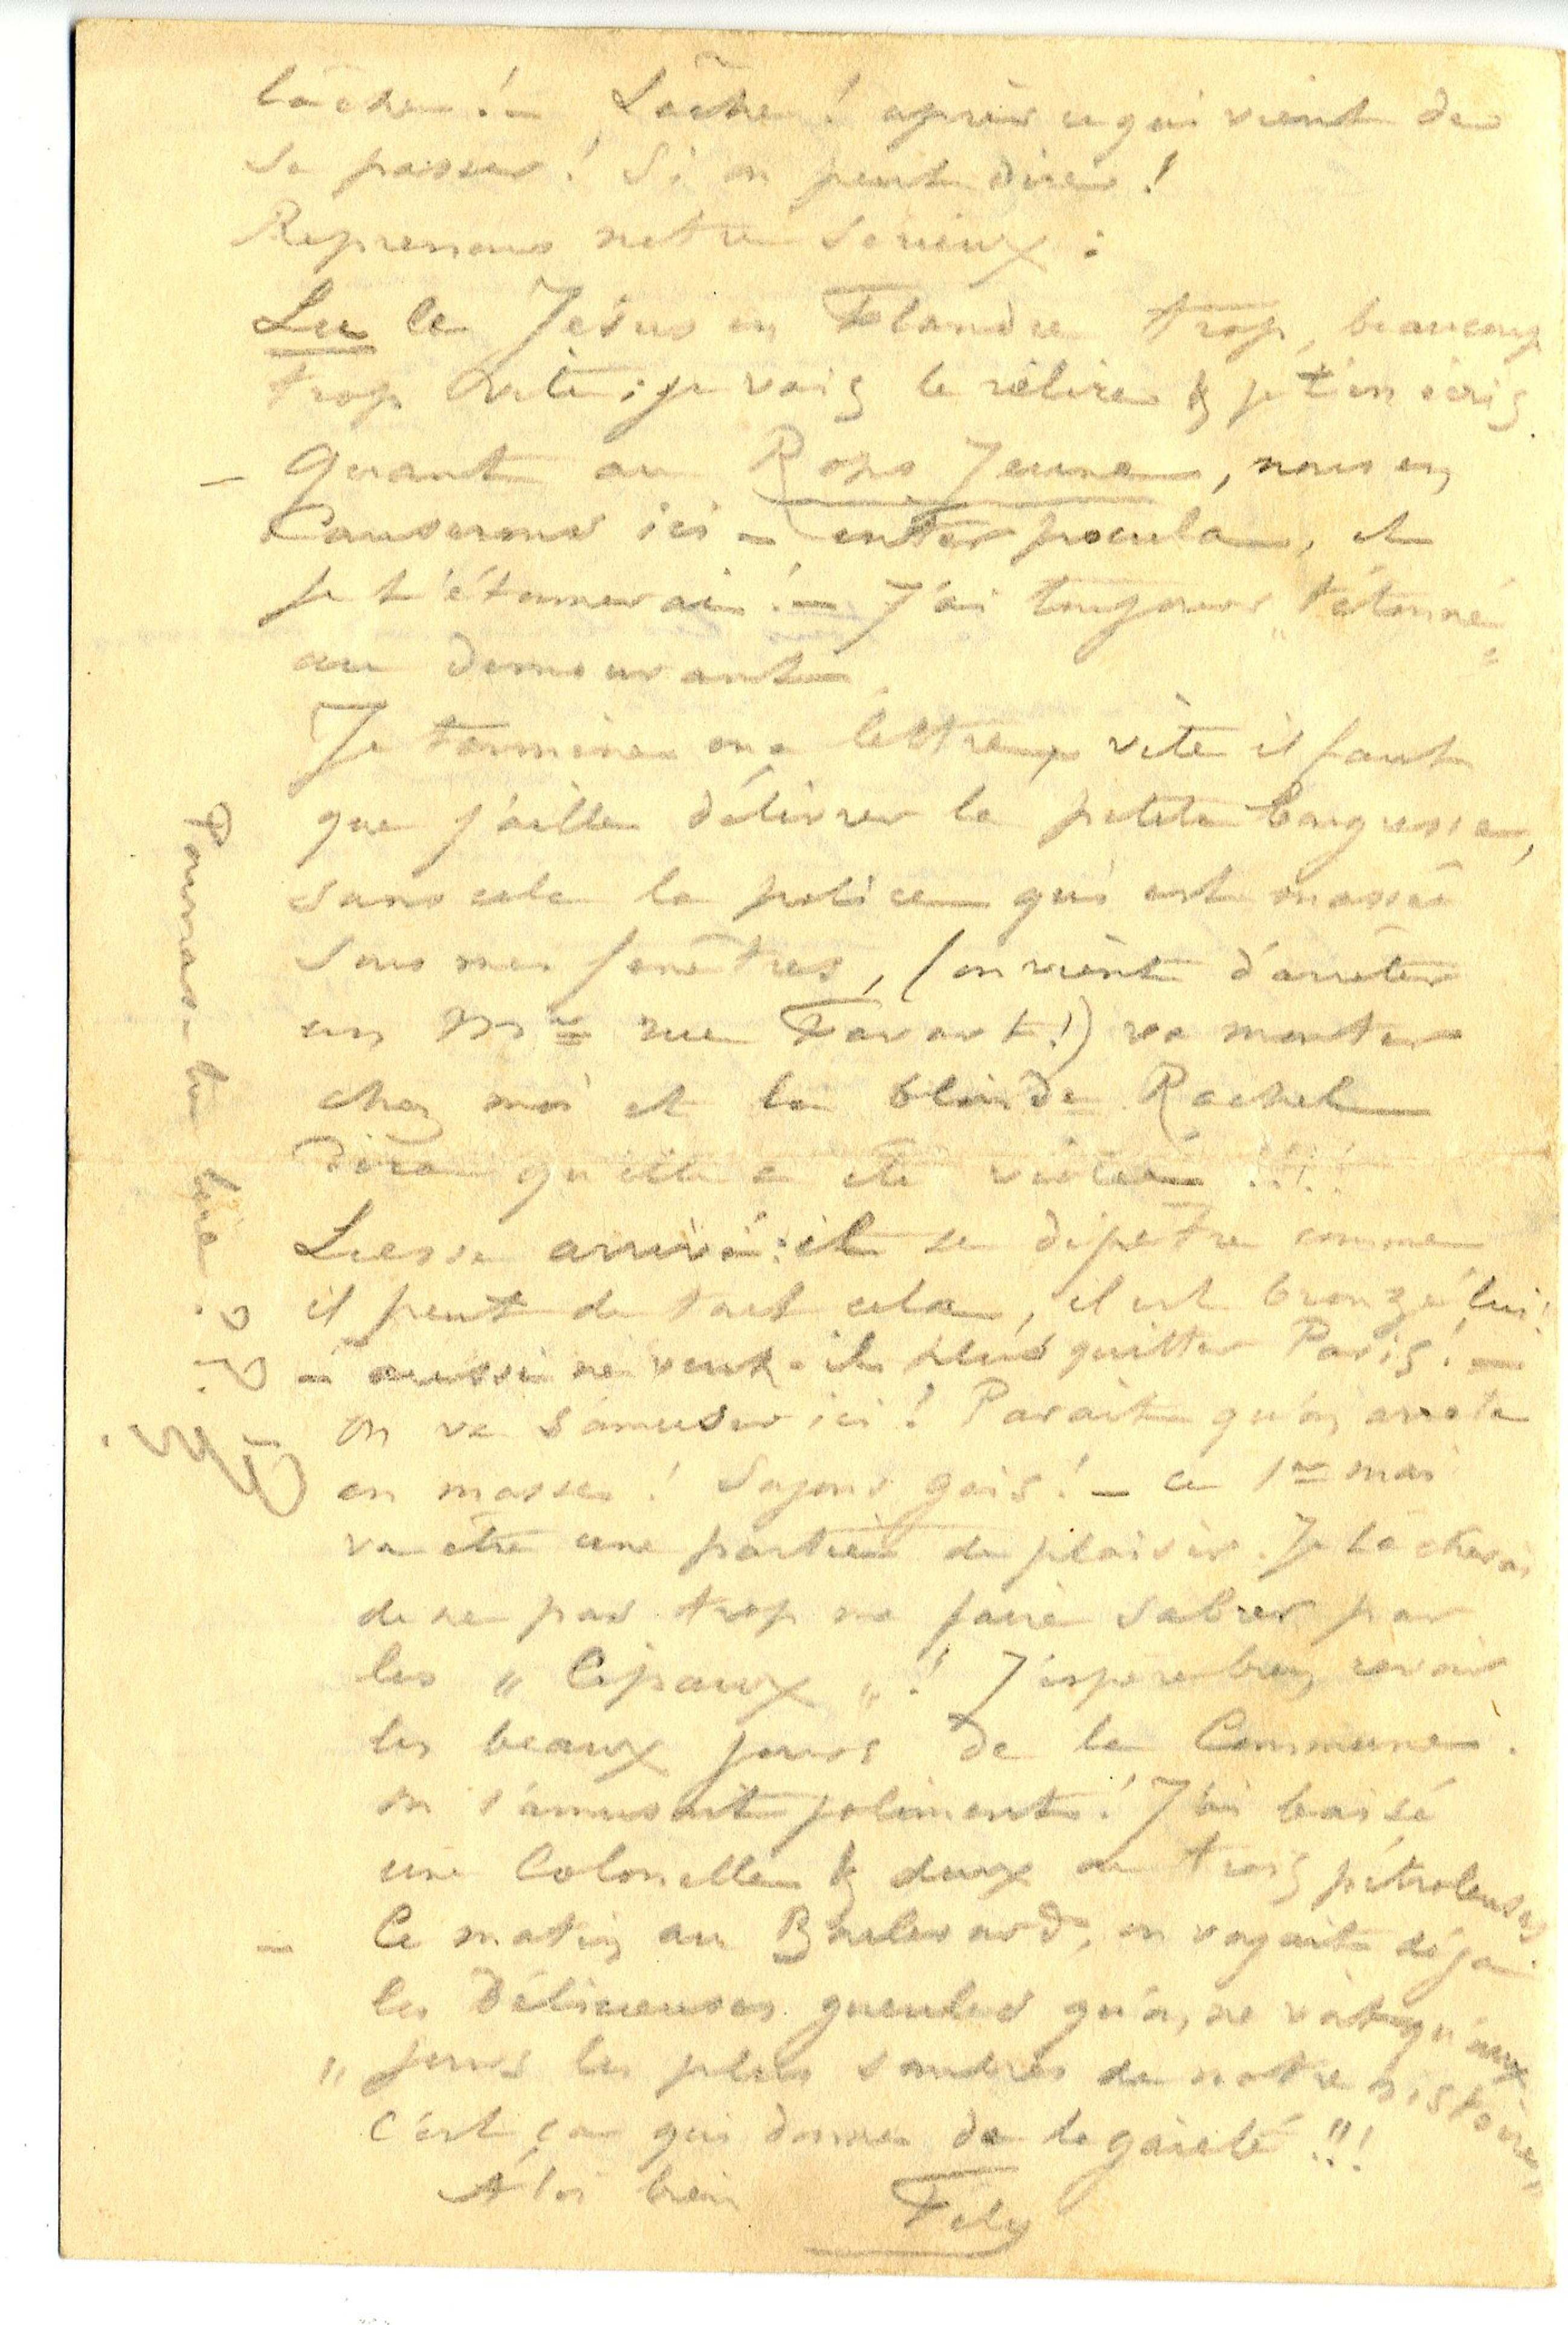 lâcher ! – Lâcher ! après ce qui vient de
se passer ! Si on peut dire !
Reprenons notre sérieux :
Lu le Jésus en Flandre trop, beaucoup
trop vite ; je vais le relire & je t'en écris
– Quant au Rops Jeune, nous en
causerons ici – inter pocula, et
je t'étonnerai ! – J'ai toujours „ t'étonné „
au demeurant
Je termine ma lettre, vite il faut
que j'aille délivrer la petite bougresse,
sans cela la police qui est massée
sous mes fenêtres, (on vient d'arrêter
un Mr rue Favart !) va monter
chez moi et la blonde Rachel
dira qu'elle a été violée !!!!
Liesse arrivé : il se dépêtre comme
il peut de tout cela, il est bronzé lui !
– aussi ne veut-il plus quitter Paris ! –
On va s'amuser ici ! Parait qu'on arrete
en masse ! Soyons gais ! – ce 1er mai
va être une partie de plaisir. Je tâcherai
de ne pas trop me faire sabrer par
les „ Cipaux „ ! J'espère bien revoir
les beaux jours de la Commune.
On s'amusait joliment ! J'ai baisé
une Colonelle & deux ou trois pétroleuses.
– Ce matin au Boulevard, on voyait déja
les délicieuses gueules qu'on ne voit qu'aux
„ jours les plus sombres de notre histoire „
c'est ça qui donne de la gaieté !!!
A toi bien
Fély
Pourras-tu lire ?